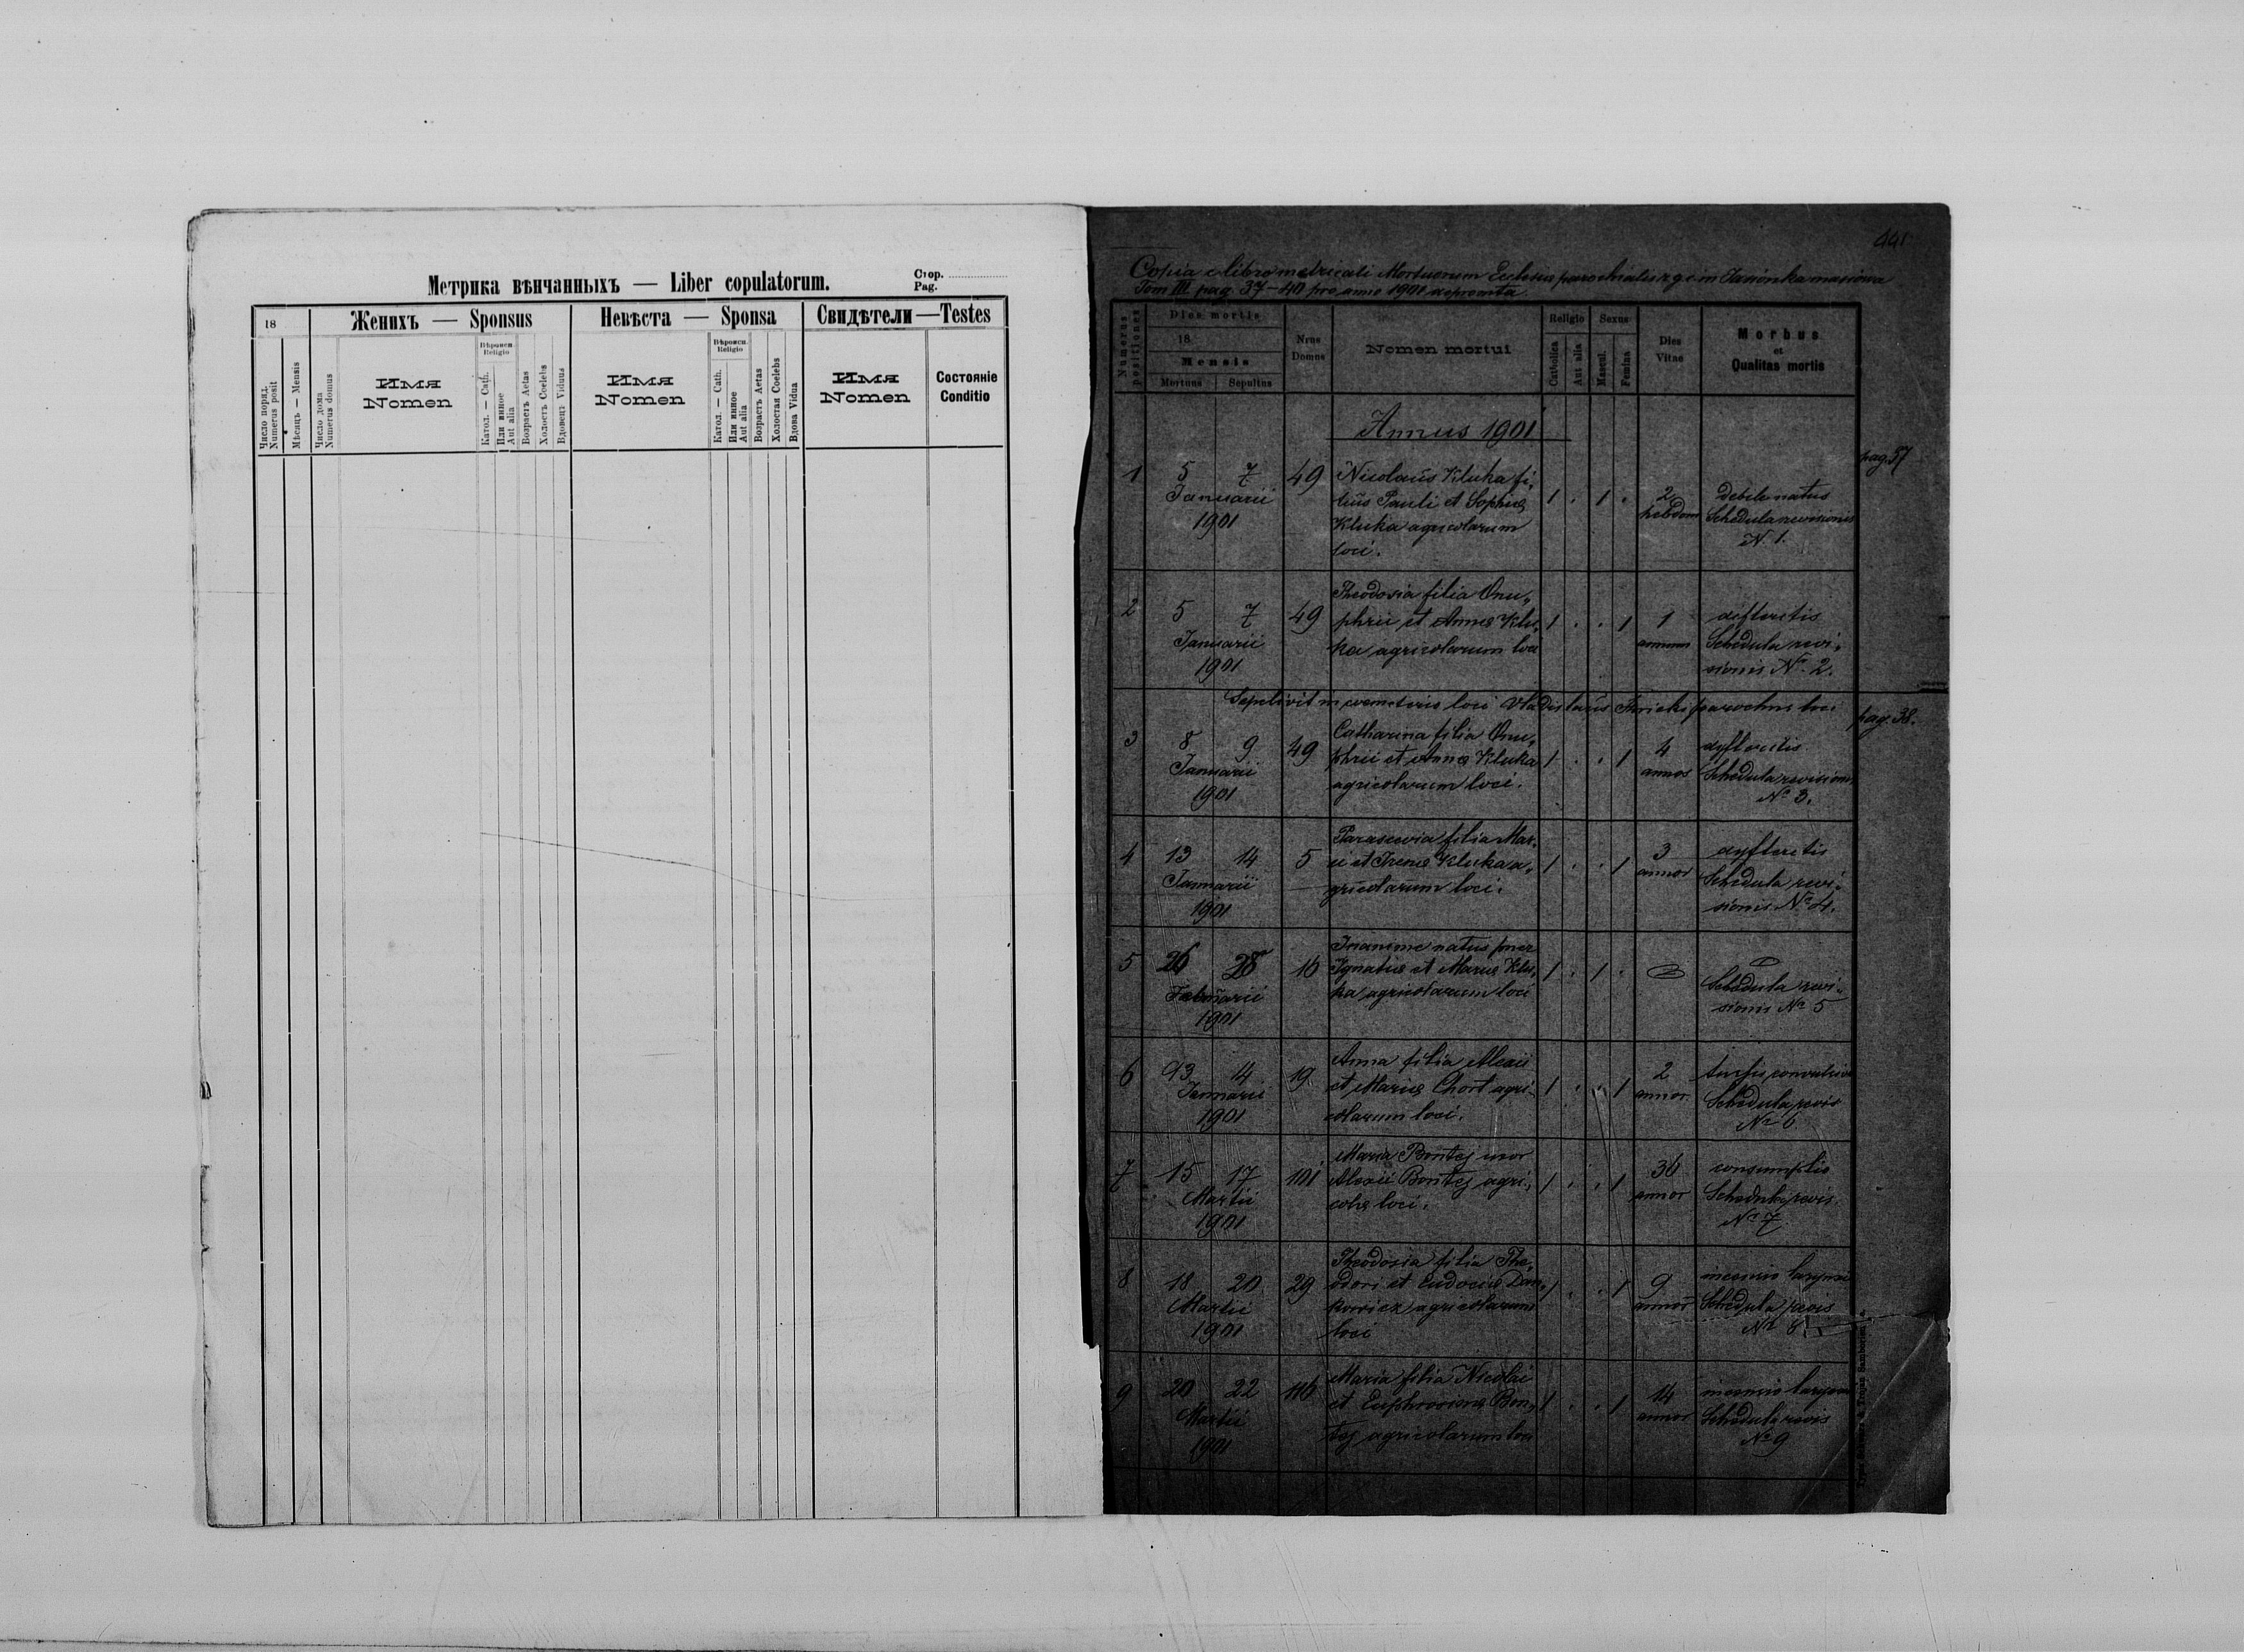 Метрика вѣнчанныхъ — Liber copulatorum.
Стор.
Pag.
18
Женихъ — Sponsus
Невѣста — Sponsa
Свидѣтели — Testes
Число поряд.
Numerus posit
Мѣсяць — Mensis
Число дома
Numerus domus
Имя
Nomen
Вѣроисп.
Religio
Катол. — Cath.
Или инное
Aut alia
Возрастъ Aetas
Холостъ Coelebs
Вдовецъ Viduus
Имя
Nomen
Вѣроисп.
Religio
Катол. — Cath.
Или инное
Aut alia
Возрастъ Aetas
Холостая Coelebs
Вдова Vidua
Имя
Nomen
Состояніе
Conditio
441
Copia e libro metricali Mortuorum Ecclesiae parochialis r. g. c. in
Tom III pag 37–40 pro anno 1901 deprompta.
Numerus
positiones
Dies mortis
18
Mensis
Mortuus
Sepultus
Nrus
Domus
Nomen mortui
Religio
Catholica
Aut alia
Sexus
Mascul.
Femina
Dies
Vitae
Morbus
et
Qualitas mortis
Annus 1901
pag. 37
1 5 7 49 Nicolaus Kluka fi-
Januarii lius Pauli et Sophiae 1 . 1 . 2 debile natus
1901 Kluka agricolarum hebdom Schedula revisionis
loci. N. 1.
2 5 7 49 Theodosia filia Onu-
Januarii phrii et Annae Klu- 1 . . 1 1 difteritis
1901 ka agricolarum loci annum Schedula revi-
sionis No 2.
Sepelivit in coemeterio loci Vladislaus parochus loci
pag. 38.
3 8 9 49 Catharina filia Onu-
Januarii phrii et Annae Kluka 1 . . 1 4 dyfteritis
1901 agricolarum loci. annos Schedula revisionis
No 3.
4 13 14 5 Parascevia filia
Januarii et Irenae Kluka a- 1 . . 1 3 dyfteritis
1901 gricolarum loci. annor Schedula revi-
sionis No 4.
5 26 28 16 Inanime natus puer
Februarii Ignatii et Mariae Klu- 1 . 1 .
1901 ka agricolarum loci Schedula revi-
sionis No 5
6 13 14 19 Anna filia Alexii
Januarii et Mariae Chort agri- 1 . . 1 2 tussis convulsiva
1901 colarum loci. annor. Schedula revis
No 6
7 15 17 101 Maria Bontej uxor
Martii Alexii Bontej agri- 1 . . 1 36 consumptio
1901 colae loci. annor Schedula revis.
No 7.
8 18 20 29 Theodosia filia The-
Martii odori et Eudociae 1 . . 1 9
1901 agricolarum annor Schedula revis
loci No 8
9 20 22 116 Maria filia Nicolai
Martii et Euphrosinae Bon- 1 . . 1 14
1901 tej agricolarum loci annor Schedula revis
No 9